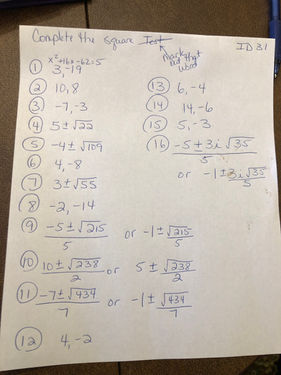 Complete the square Test
mark out that word
ID 31
x²+16x-62=5
① 3, -19
② 10, 8
③ -7, -3
④ 5 ± √22
⑤ -4 ± √109
⑥ 4, -8
⑦ 3 ± √55
⑧ -2, -14
⑨ -5 ± √215 / 5 or -1 ± √215 / 5
⑩ 10 ± √238 / 2 or 5 ± √238 / 2
⑪ -7 ± √434 / 7 or -1 ± √434 / 7
⑫ 4, -2
⑬ 6, -4
⑭ 14, -6
⑮ 5, -3
⑯ -5 ± 3i √35 / 5
or -1 ± 3i √35 / 5